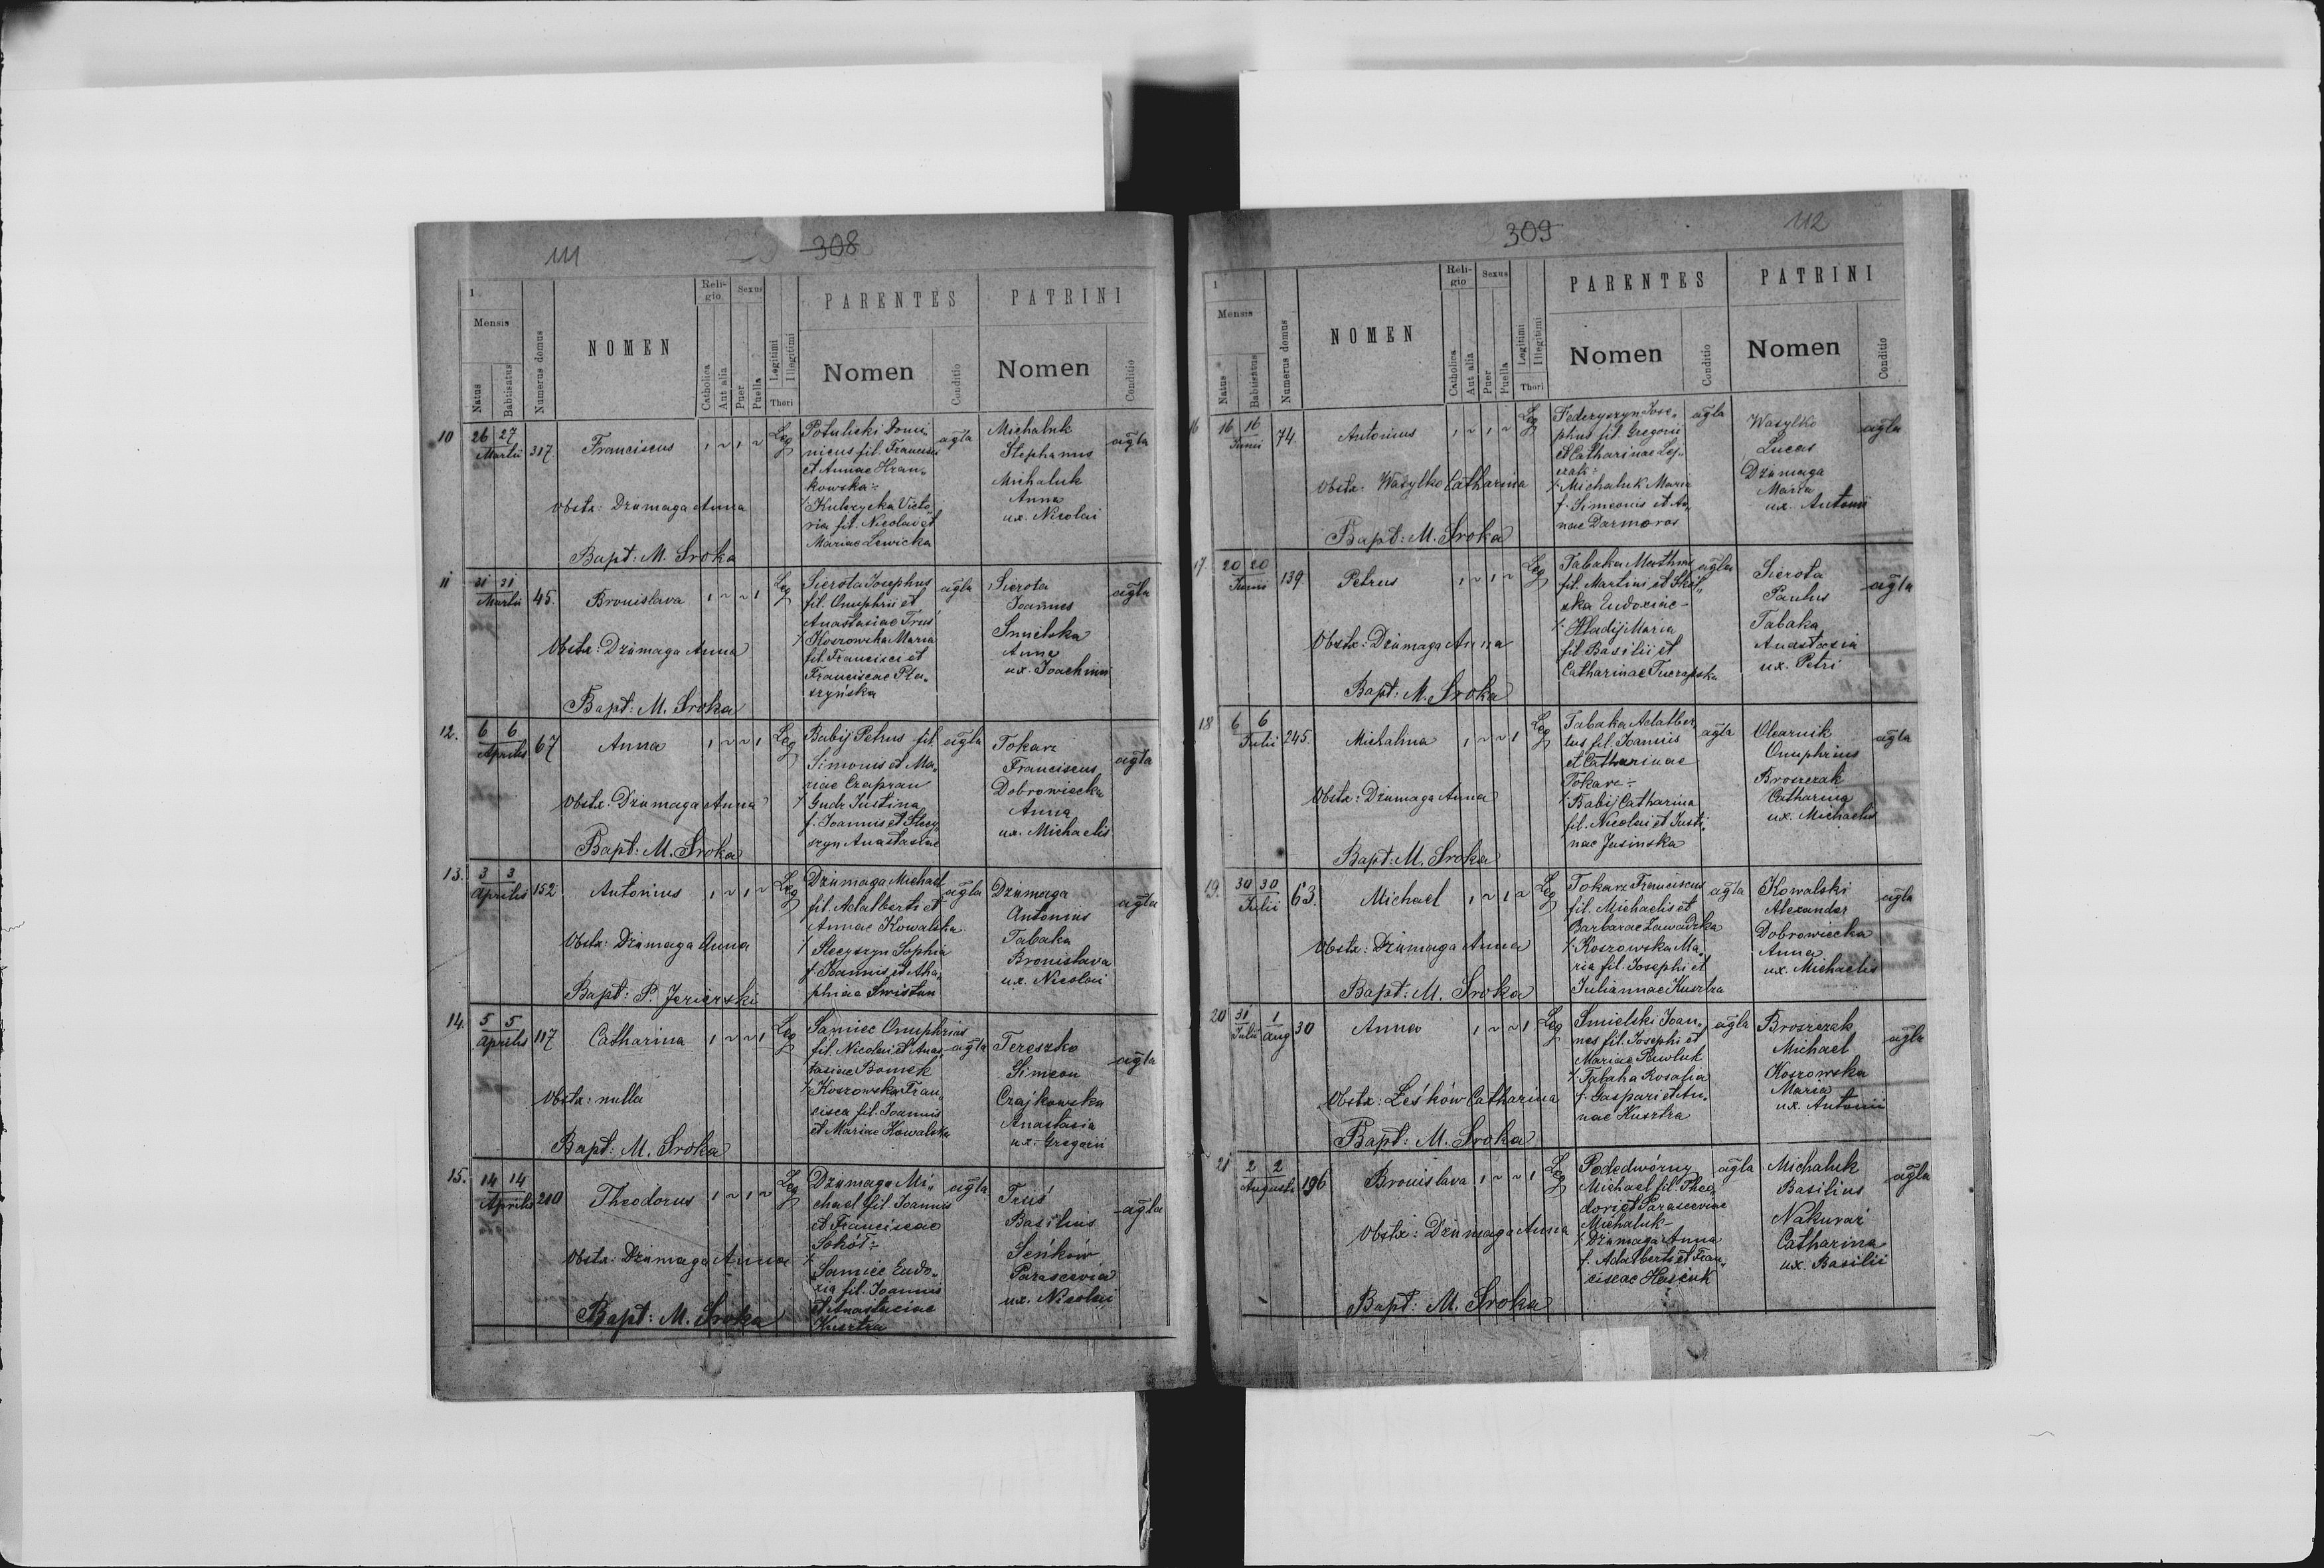 111
308
1
Mensis
Natus
Babtisatus
Numerus domus
NOMEN
Reli-
gio
Catholica
Aut alia
Sexus
Puer
Puella
Legitimi
Illegitimi
Thori
PARENTES
Nomen
Conditio
PATRINI
Nomen
Conditio
10 26 27 Martii 317 Franciscus 1 ~ 1 ~ Leg
Potulicki Domi„
nicus fil. Francisci
et Annae Hran„
kowska÷
% Kulczycka Victo„
ria fil. Nicolai et
Mariae Lewicka
agla
Michaluk
Stephanus
Michaluk
Anna
ux. Nicolai
agla
Obstx: Dziumaga Anna
Bapt: M. Sroka
11 31 31 Martii 45. Bronislava 1 ~ ~ 1 Leg
Sierota Josephus
fil. Onuphrii et
Anastasiae Truś
% Kozrowska Maria
fil. Francisci et
Franciscae Pta„
szyńska
agla
Sierota
Joannes
Smielska
Anna
ux. Joachimi
agla
Obstx: Dziumaga Anna
Bapt: M. Sroka
12. 6 6 Aprilis 67 Anna 1 ~ ~ 1 Leg
Babij Petrus fil.
Simonis et Ma„
riae Czapran
% Gudz Justina
f. Joannis et Stecy„
szyn Anastasiae
agla
Tokarz
Franciscus
Dobrowiecka
Anna
ux. Michaelis
agla
Obstx: Dziumaga Anna
Bapt: M. Sroka
13. 3 3 Aprilis 152 Antonius 1 ~ 1 ~ Leg
Dziumaga Michael
fil. Adalberti et
Annae Kowalska
% Stecyszyn Sophia
f. Joannis et Aha„
phiae Swistun
agla
Dziumaga
Antonius
Tabaka
Bronislava
ux. Nicolai
agla
Obstx: Dziumaga Anna
Bapt: P. Jezierski
14. 5 5 Aprilis 117 Catharina 1 ~ ~ 1 Leg
Samiec Onuphrius
fil. Nicolai et Anas„
tasiae Bomek
% Kozrowska Fran„
cisca fil. Joannis
et Mariae Kowalska
agla
Tereszko
Simeon
Czajkowska
Anastasia
ux. Gregorii
agla
Obstx: nulla
Bapt: M. Sroka
15. 14 14 Aprilis 210 Theodorus 1 ~ 1 ~ Leg
Dziumaga Mi„
chael fil. Joannis
et Franciscae
Sokół÷
%
Samiec Eudo„
xia fil. Joannis
et Anastasiae
Kusztra
agla
Truś
Basilius
Seńków
Parascevia
ux. Nicolai
agla
Obstx: Dziumaga Anna
Bapt: M. Sroka
309
112
1
Mensis
Natus
Babtisatus
Numerus domus
NOMEN
Reli-
gio
Catholica
Aut alia
Sexus
Puer
Puella
Legitimi
Illegitimi
Thori
PARENTES
Nomen
Conditio
PATRINI
Nomen
Conditio
16 16 16 Junii 74. Antonius 1 ~ 1 ~ Leg
Federyszyn Jose„
phus fil. Gregorii
et Catharinae Lej„
czak÷
% Michaluk Maria
f. Simeonis et An„
nae Darmoros
agla
Wasylko
Lucas
Dziumaga
Maria
ux. Antonii
agla
Obstx: Wasylko Catharina
Bapt: M. Sroka
17 20 20 Junii 139. Petrus 1 ~ 1 ~ Leg
Tabaka Mathias
fil. Martini et
Eudoxiae-
% Hladij Maria
fil. Basilii et
Catharinae Tuczapska
agla
Sierota
Paulus
Tabaka
Anastasia
ux. Petri
agla
Obstx: Dziumaga Anna
Bapt: M. Sroka
18 6 6 Julii 245. Michalina 1 ~ ~ 1 Leg
Tabaka Adalber„
tus fil. Joannis
et Catharinae
Tokarz÷
% Babij Catharina
fil. Nicolai et Justi„
nae Jasinska
agla
Olearnik
Onuphrius
Broszczak
Catharina
ux. Michaelis
agla
Obstx: Dziumaga Anna
Bapt: M. Sroka
19. 30 30 Julii 63. Michael 1 ~ 1 ~ Leg
Tokarz Franciscus
fil. Michaelis et
Barbarae Zawadzka
% Kozrowska Ma„
ria fil. Josephi et
Juliannae Kusztra
agla
Kowalski
Alexander
Dobrowiecka
Anna
ux. Michaelis
agla
Obstx: Dziumaga Anna
Bapt: M. Sroka
20 31 Julii 1 Aug 30 Anna 1 ~ ~ 1 Leg
Smielski Joan„
nes fil. Josephi et
Mariae Pawluk
% Tabaka Rosalia
f. Gaspari et An„
nae Kusztra
agla
Broszczak
Michael
Kozrowska
Maria
ux. Antonii
agla
Obstx: Leśków Catharina
Bapt: M. Sroka
21 2 2 Augusti 196 Bronislava 1 ~ ~ 1 Leg
Podedwórny
Michael fil. Theo„
dori et Parasceviae
Michaluk-
% Dziumaga Anna
f. Adalberti et Fran„
ciscae Hasiuk
agla
Michaluk
Basilius
Nakuvaź
Catharina
ux. Basilii
agla
Obstx: Dziumaga Anna
Bapt: M. Sroka